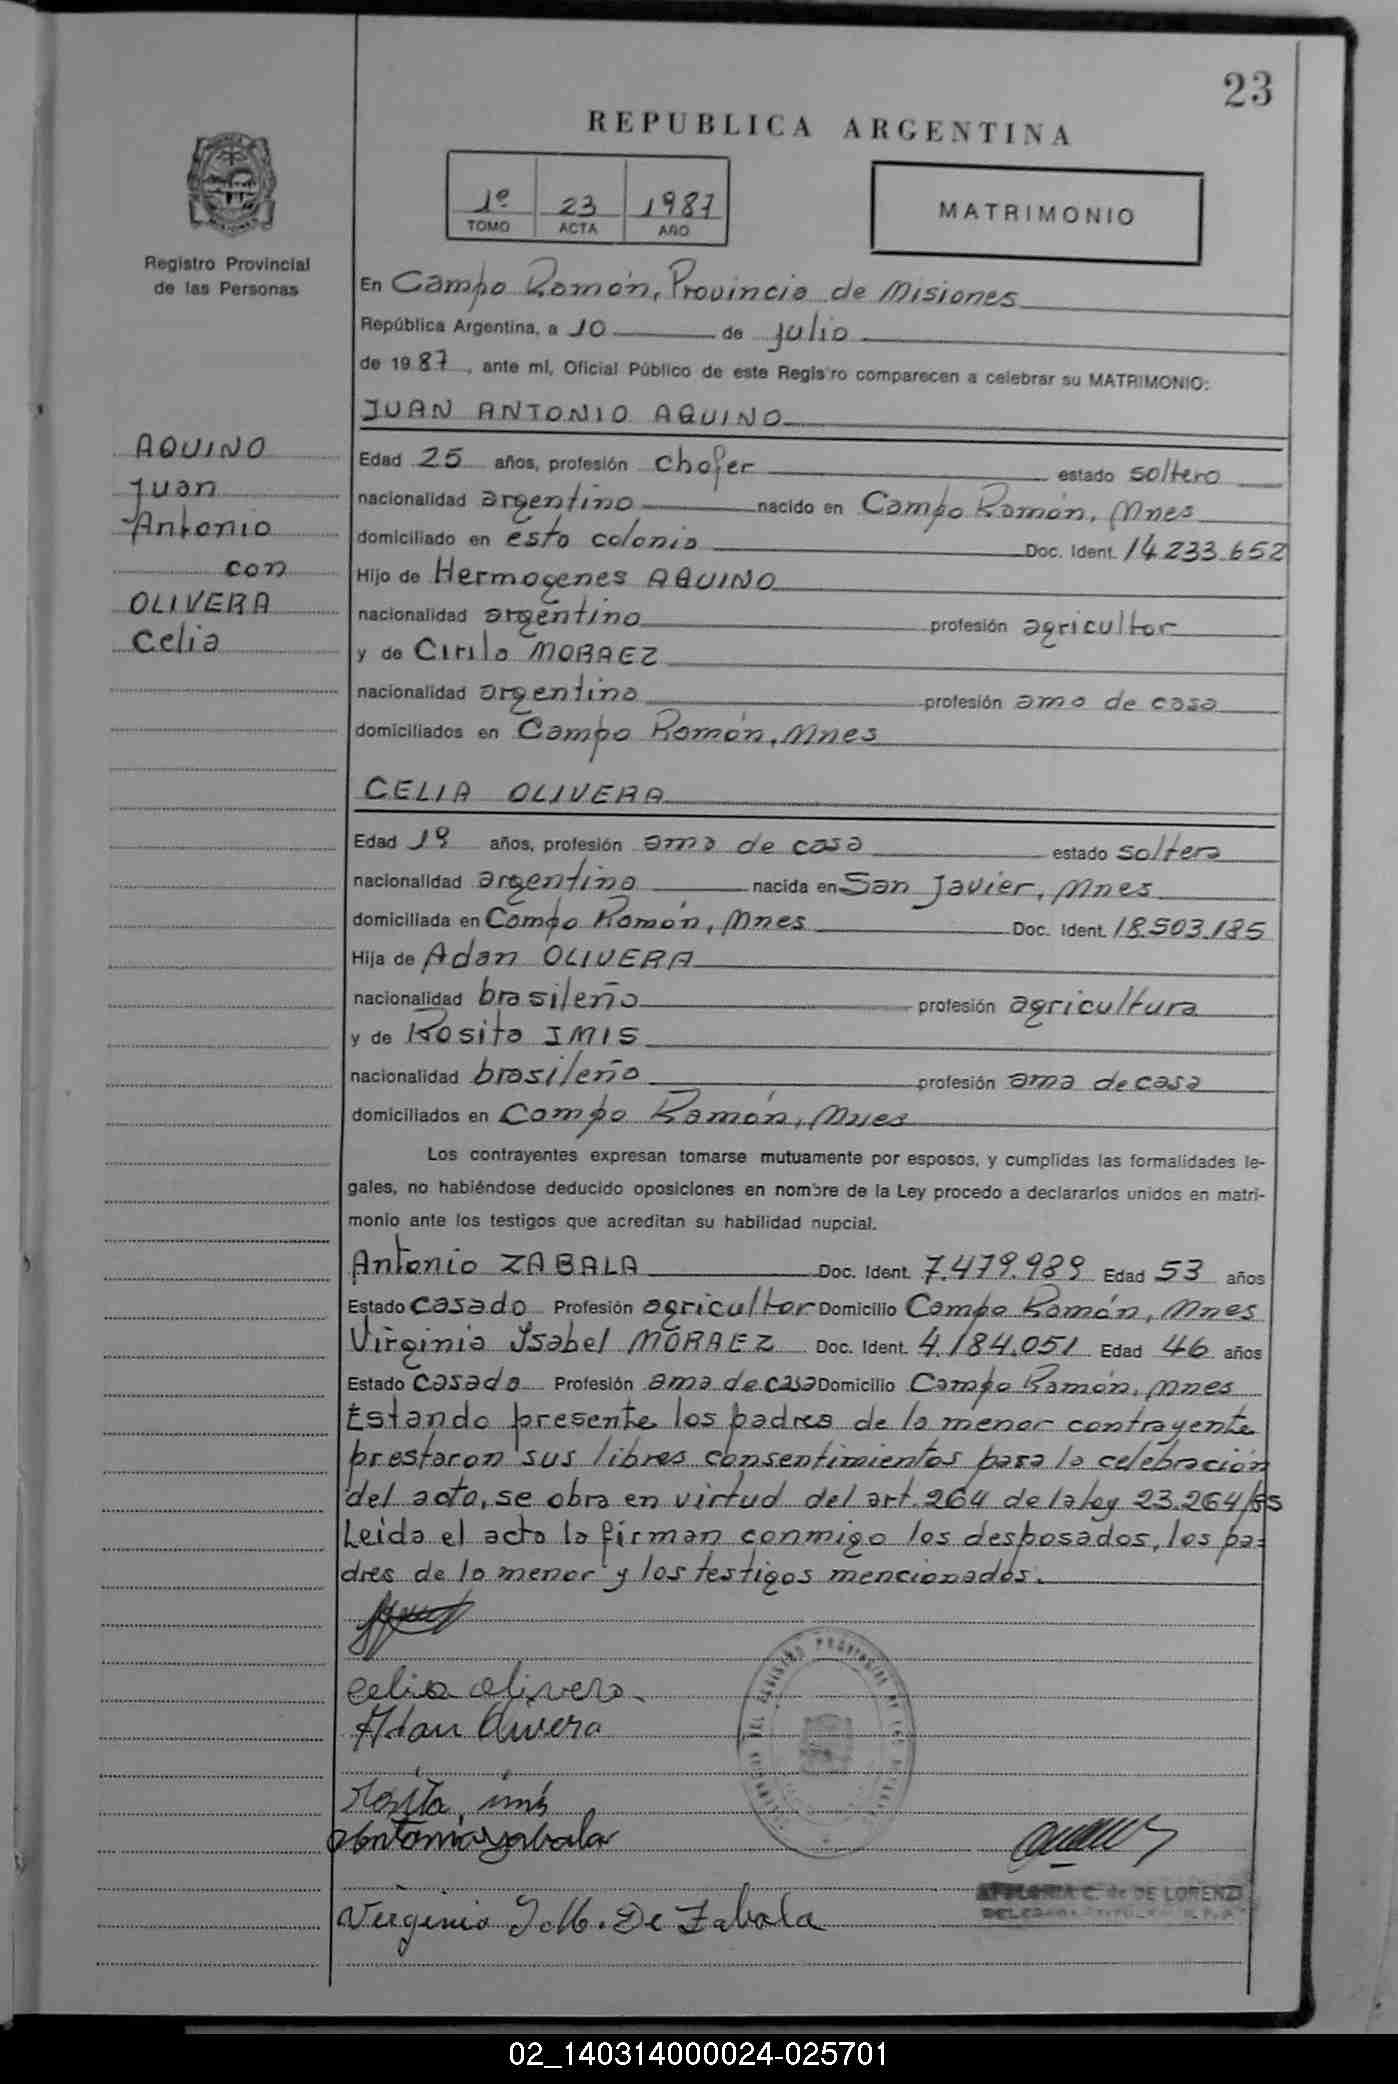 23
REPUBLICA ARGENTINA
1º 23 1987
TOMO ACTA AÑO
MATRIMONIO
Registro Provincial
de las Personas
En Campo Ramón, Provincia de Misiones
República Argentina, a 10 de julio
de 1987, ante mí, Oficial Público de este Registro comparecen a celebrar su MATRIMONIO:
JUAN ANTONIO AQUINO
AQUINO
Juan
Antonio
con
OLIVERA
Celia
Edad 25 años, profesión chofer estado soltero
nacionalidad argentino nacido en Campo Ramón, Mnes
domiciliado en esta colonia Doc. Ident. 14.233.652
Hijo de Hermogenes AQUINO
nacionalidad argentino profesión agricultor
y de Cirila MORAEZ
nacionalidad argentina profesión ama de casa
domiciliados en Campo Ramón, Mnes
CELIA OLIVERA
Edad 19 años, profesión ama de casa estado soltera
nacionalidad argentina nacida en San Javier, Mnes
domiciliada en Campo Ramón, Mnes Doc. Ident. 18.503.185
Hija de Adan OLIVERA
nacionalidad brasileño profesión agricultura
y de Rosita IMIS
nacionalidad brasileña profesión ama de casa
domiciliados en Campo Ramón, Mnes
Los contrayentes expresan tomarse mutuamente por esposos, y cumplidas las formalidades le-
gales, no habiéndose deducido oposiciones en nombre de la Ley procedo a declararlos unidos en matri-
monio ante los testigos que acreditan su habilidad nupcial.
Antonio ZABALA Doc. Ident. 7.479.989 Edad 53 años
Estado casado Profesión agricultor Domicilio Campo Ramón, Mnes
Virginia Ysabel MORAEZ Doc. Ident. 4.184.051 Edad 46 años
Estado casada Profesión ama de casa Domicilio Campo Ramón, Mnes
Estando presente los padres de la menor contrayente
prestaron sus libres consentimientos para la celebración
del acto, se obra en virtud del art. 264 de la ley 23.264/85
Leida el acta la firman conmigo los desposados, los pa=
dres de la menor y los testigos mencionados.
Celia Olivera
Adan Olivera
Rosita imis
Antonio Zabala
Virginia Y. M. De Zabala
C. de DE LORENZI
02_140314000024-025701